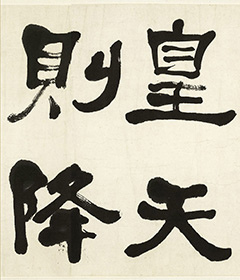 皇天
則降